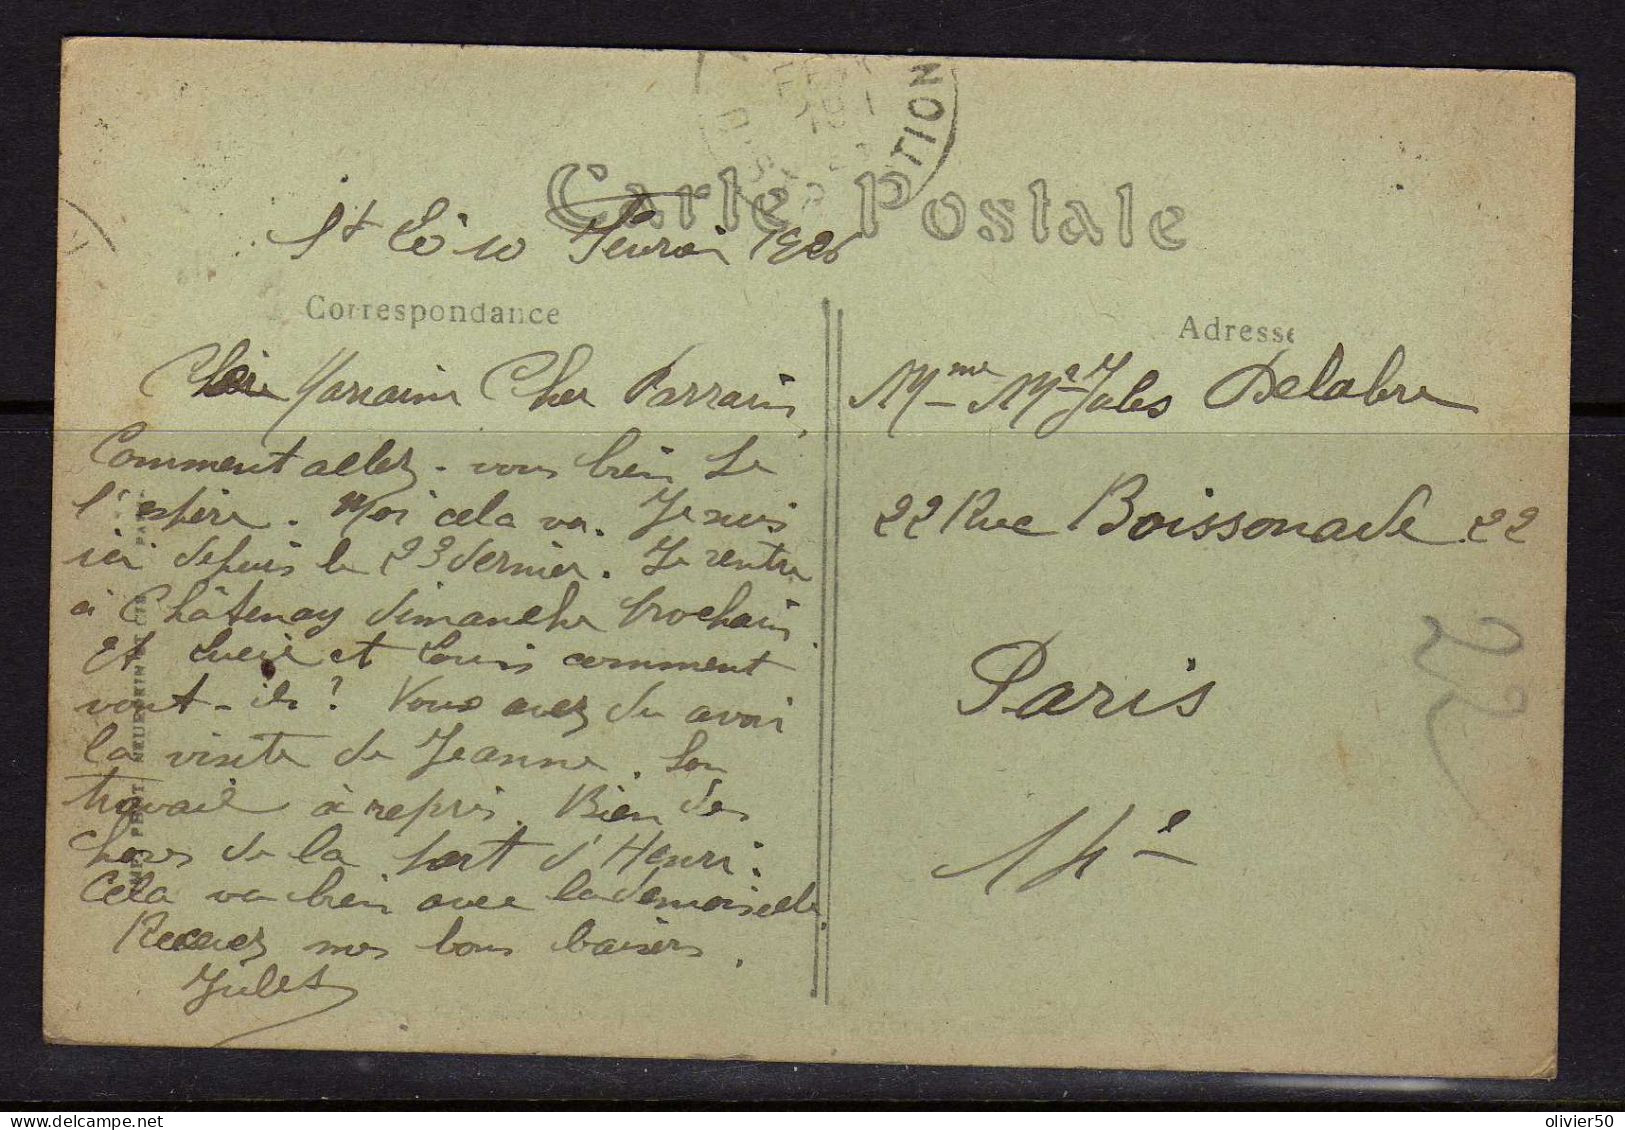 TION
Carte Postale
St Lô 10 Fevrier 1926
Correspondance
Adresse
Chère Marraine Cher Parrain,
Comment allez-vous bien Je
l'espère. Moi cela va. Je suis
ici depuis le 23 dernier. Je rentre
à Châtenay dimanche prochain
Et Lucie et Louis comment
vont-ils? Vous avez du avoir
la visite de Jeanne. Son
travail à repris. Bien des
choses de la part d'Henri.
Cela va bien avec la demoiselle.
Recevez mes bons baisers.
Jules
Mme Mr Jules Delabre
22 Rue Boissonade 22
Paris
14e
22
IMP. PHOT. NEURDEIN ET CIE. PARIS
olivier50